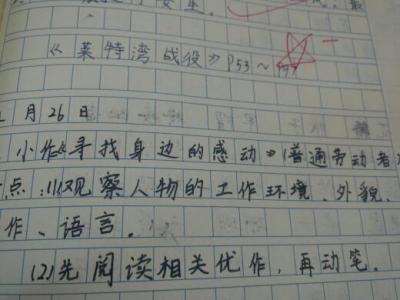 《莱特湾战役》P53~
月26日
小作《寻找身边的感动》(普通劳动者)
点:(1)观察人物的工作环境、外貌、
作、语言。
(2)先阅读相关优作,再动笔。